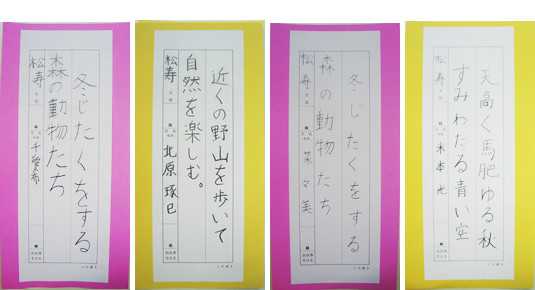 冬じたくをする
森の動物たち
松寿
近くの野山を歩いて
自然を楽しむ。
松寿
北原琢巳
冬じたくをする
森の動物たち
松寿
菜々美
天高く馬肥ゆる秋
すみわたる青い空
松寿
米本光